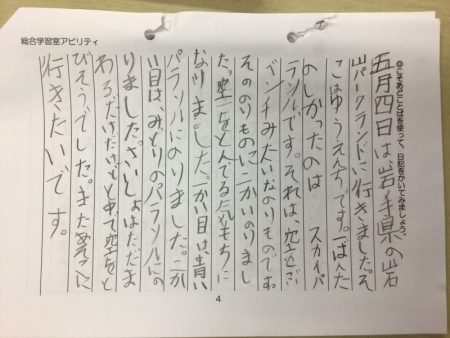 総合学習室アビリティ
◎こそあどことばを使って、日記をかいてみましょう。
五月四日は、岩手県の岩
山パークランドに行きました。そ
こはゆうえんちです。一ばんた
のしかったのは スカイパ
ラソルです。それは、空をこぐ
ベンチみたいなのりものです。
そののりものに二かいのりまし
た。空をとんでる気もちに
なりました。一かい目は青い
パラソルにのりました。二か
い目は、みどりのパラソルにの
りました。さいしょはただま
わるだけだけどと中で空をと
びそうでした。またあそこに
行きたいです。
4